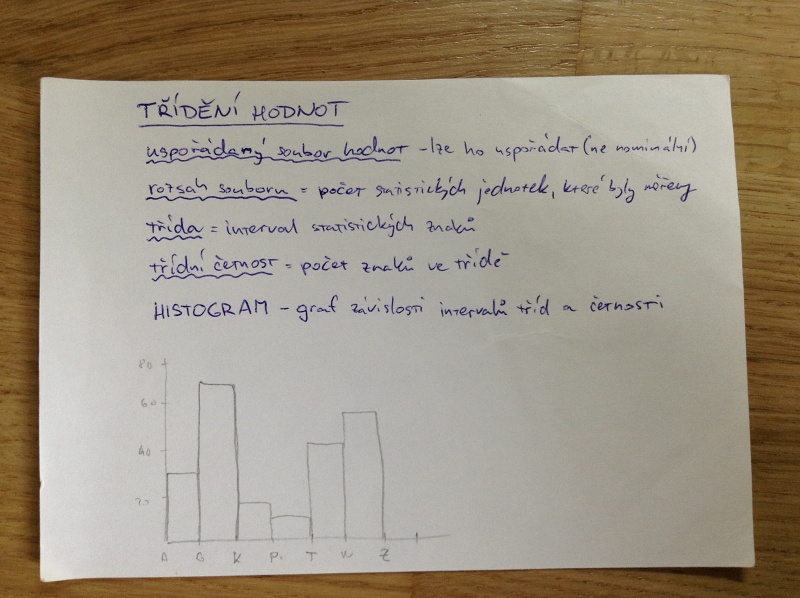 TŘÍDĚNÍ HODNOT
uspořádaný soubor hodnot - lze ho uspořádat (ne nominální)
rozsah souboru = počet statistických jednotek, které byly měřeny
třída = interval statistických znaků
třídní četnost = počet znaků ve třídě
HISTOGRAM - graf závislosti intervalů tříd a četnosti
80
60
40
20
A G K P T W Z